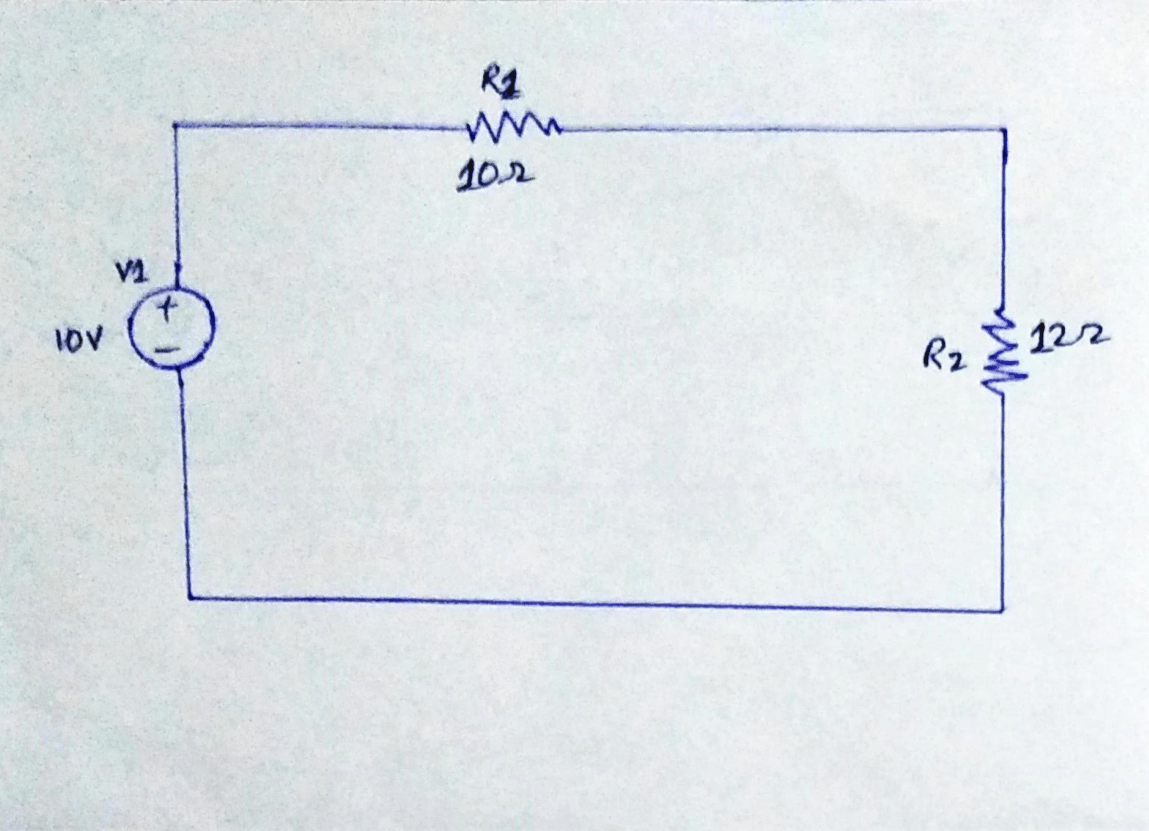 R1
10Ω
V1
+
10V
−
R2
12Ω